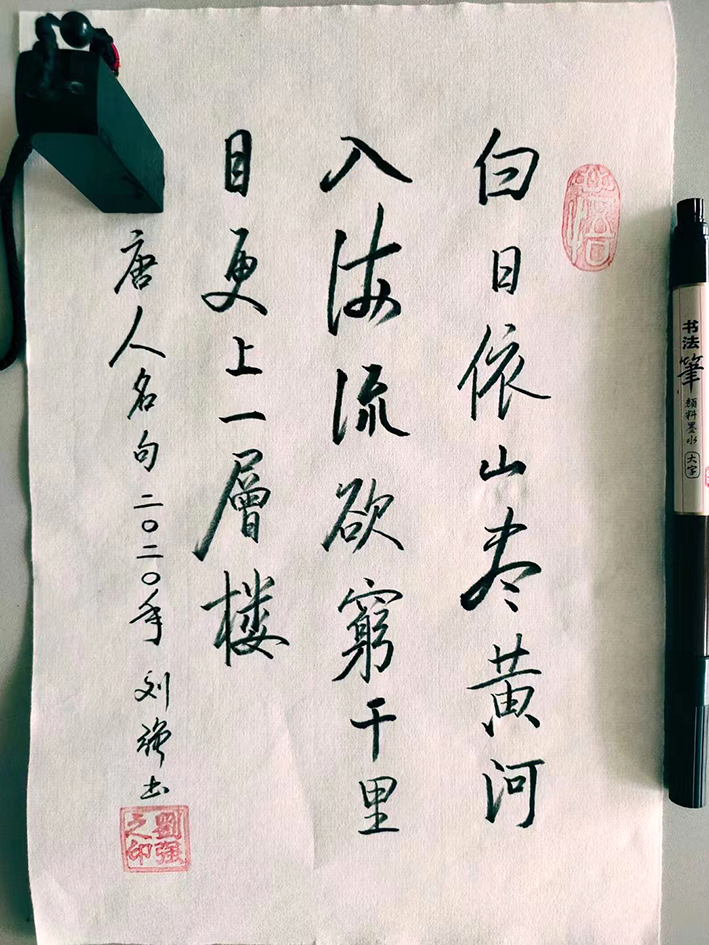 白日依山尽黄河
入海流欲窮千里
目更上一層楼
唐人名句二〇二〇年刘强书
劉强之印
书法筆
顔料墨水
大字